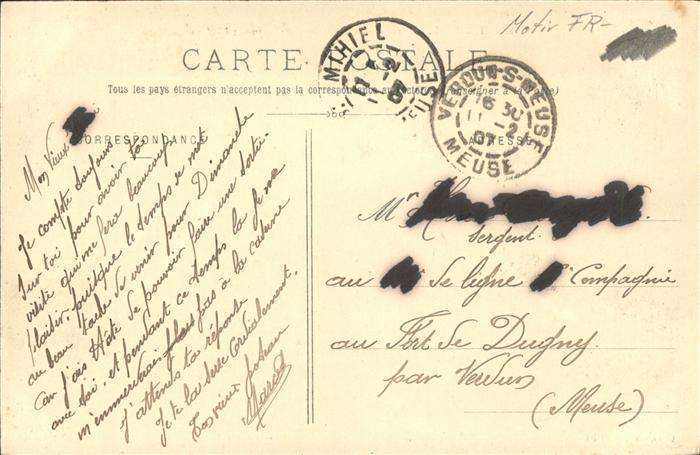 Motif FR-
CARTE POSTALE
Tous les pays étrangers n'acceptent pas la correspondance au recto (se renseigner à la poste)
MIHIEL
MEUSE
VERDUN-S-MEUSE
16 30
11 -2
07
MEUSE
CORRESPONDANCE
ADRESSE
Mon Vieux
Je compte toujours
sur toi pour avoir ta
visite qui me fera beaucoup
plaisir. puisque le temps se met
au beau tache de venir pour Dimanche
car j'ais Hâte de pouvoir faire une sortie
avec toi, et pendant ce temps là je ne
m'emmerderais plus pas à la caserne
J'attends ta réponse
Je te la serre Cordialement.
Ton vieux
Marcel
Mr
Sergent
au de ligne Compagnie
au Fort de Dugny
par Verdun
(Meuse)